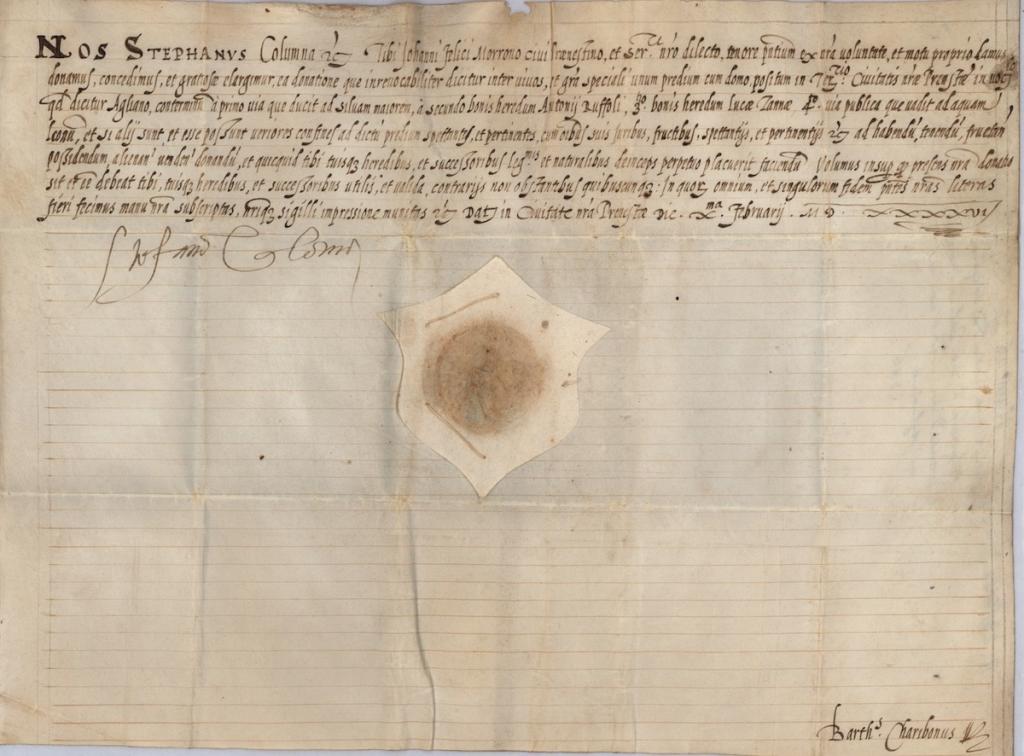 NOS STEPHANVS Columna &c Tibi Johanni felici Morrono civi Prenestino, et Ser.ti nr̃o dilecto, tenore pñtium ex nr̃a voluntate, et motu proprio damus
donamus, concedimus, et gratose elargimur, ea donatione que inrevocabiliter dicitur inter vivos, et grã speciali unum predium cum domo, positum in Civitatis nr̃e Prenestæ in
qd̃ dicitur Agliano, conterminũ à primo via que ducit ad silvam maiorem, à secundo bonis heredum Antonij Ruffoli, 3º bonis heredum Lucæ Zannæ 4º via publica que vadit ad aquam
et si alij sunt, et esse possunt veriores confines, ad dictũ predium spettantes, et pertinentes, cum oĩbus suis juribus, fructibus, spettantijs, et pertinentijs &c ad habendũ, tenendũ, fructandũ
possidendum, alienanđ vendenđ donandũ, et quecquid tibi tuisq; heredibus, et successoribus legmis et naturalibus deinceps perpetuo placuerit faciendũ Volumus insup q̃ presens nr̃a donatio
sit et eẽ debeat tibi, tuisq; heredibus, et successoribus utilis, et valida, contrarijs non obstantibus quibuscunq; In quor, omnium, et singulorum fidem pñtes nr̃as literas
fieri fecimus manu nr̃a subscriptas, nr̃iq; sigilli impressione munitas &c Dat in Civitate nr̃a Prenestæ Die .xma. februarij . M D . XXXXVI
Stefano Colonna
Barths. Charibonus